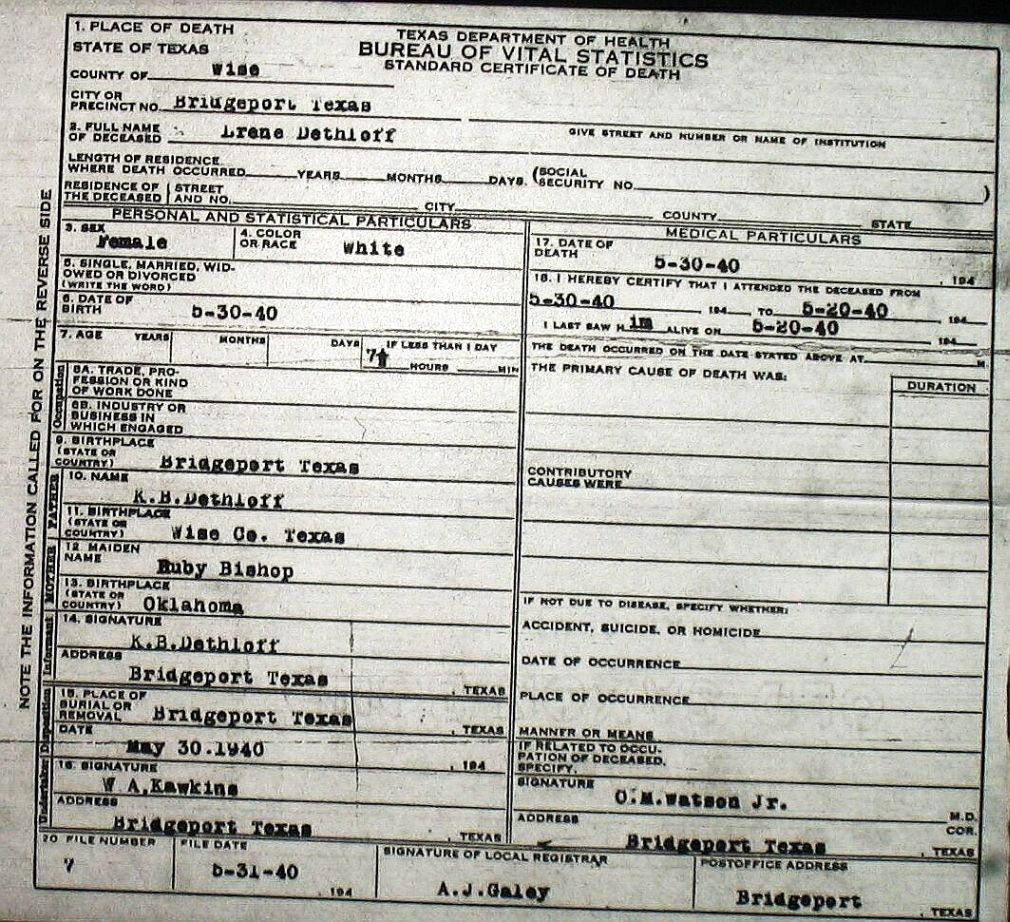 1. PLACE OF DEATH
STATE OF TEXAS
COUNTY OF Wise
TEXAS DEPARTMENT OF HEALTH
BUREAU OF VITAL STATISTICS
STANDARD CERTIFICATE OF DEATH
CITY OR
PRECINCT NO. Bridgeport Texas
GIVE STREET AND NUMBER OR NAME OF INSTITUTION
2. FULL NAME
OF DECEASED Lrene Dethloff
LENGTH OF RESIDENCE
WHERE DEATH OCCURRED YEARS MONTHS DAYS. (SOCIAL
SECURITY NO. )
RESIDENCE OF THE DECEASED STREET AND NO. CITY COUNTY STATE
PERSONAL AND STATISTICAL PARTICULARS
3. SEX
Female
4. COLOR
OR RACE White
5. SINGLE, MARRIED, WID-
OWED OR DIVORCED
(WRITE THE WORD)
6. DATE OF
BIRTH 5-30-40
7. AGE YEARS MONTHS DAYS IF LESS THAN 1 DAY
HOURS MIN
Occupation
8A. TRADE, PRO-
FESSION OR KIND
OF WORK DONE
8B. INDUSTRY OR
BUSINESS IN
WHICH ENGAGED
9. BIRTHPLACE
(STATE OR
COUNTRY) Bridgeport Texas
FATHER
10. NAME
K.B.Dethloff
11. BIRTHPLACE
(STATE OR
COUNTRY) Wise Co. Texas
MOTHER
12. MAIDEN
NAME Ruby Bishop
13. BIRTHPLACE
(STATE OR
COUNTRY) Oklahoma
Informant
14. SIGNATURE
K.B.Dethloff
ADDRESS
Bridgeport Texas , TEXAS
Disposition
15. PLACE OF
BURIAL OR
REMOVAL Bridgeport Texas , TEXAS
DATE
May 30.1940 , 194
Undertaker
16. SIGNATURE
W A.Kawkins
ADDRESS
Bridgeport Texas , TEXAS
MEDICAL PARTICULARS
17. DATE OF
DEATH 5-30-40 , 194
18. I HEREBY CERTIFY THAT I ATTENDED THE DECEASED FROM
5-30-40 194 TO 5-20-40 194
I LAST SAW H im ALIVE ON 5-20-40 194
THE DEATH OCCURRED ON THE DATE STATED ABOVE AT M.
THE PRIMARY CAUSE OF DEATH WAS:
DURATION
CONTRIBUTORY
CAUSES WERE
IF NOT DUE TO DISEASE, SPECIFY WHETHER:
ACCIDENT, SUICIDE, OR HOMICIDE
DATE OF OCCURRENCE
PLACE OF OCCURRENCE
MANNER OR MEANS
IF RELATED TO OCCU-
PATION OF DECEASED,
SPECIFY.
SIGNATURE
O.M.Watson Jr. M.D.
ADDRESS COR.
Bridgeport Texas , TEXAS
20 FILE NUMBER
7
FILE DATE
5-31-40 , 194
SIGNATURE OF LOCAL REGISTRAR
A.J.Galey
POSTOFFICE ADDRESS
Bridgeport , TEXAS
NOTE THE INFORMATION CALLED FOR ON THE REVERSE SIDE